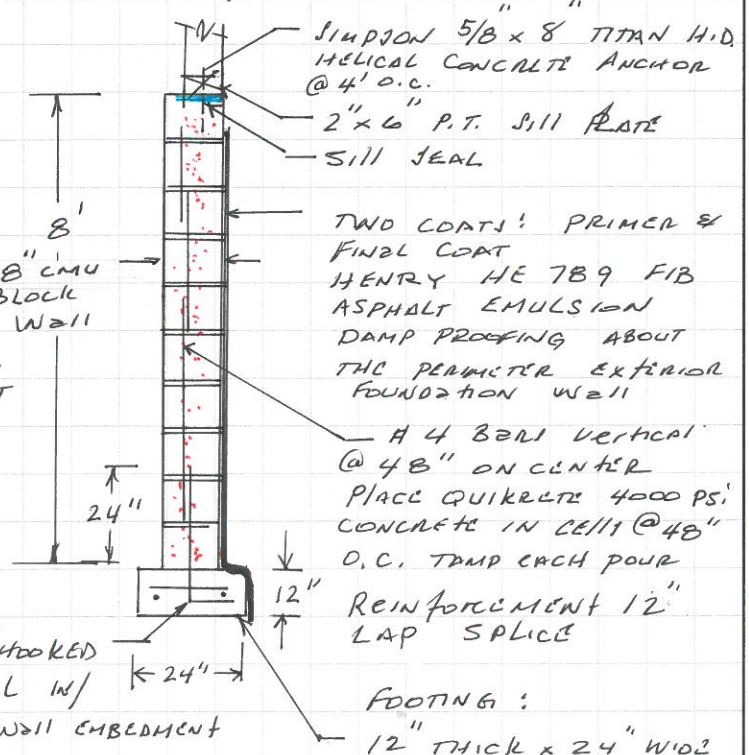 SIMPSON 5/8" x 8" TITAN H.D.
HELICAL CONCRETE ANCHOR
@ 4' O.C.
2" x 6" P.T. SILL PLATE
SILL SEAL
8'
8" CMU
BLOCK
WALL
TWO COATS: PRIMER &
FINAL COAT
HENRY HE 789 FIB
ASPHALT EMULSION
DAMP PROOFING ABOUT
THE PERIMETER EXTERIOR
FOUNDATION WALL
# 4 BARS VERTICAL
@ 48" ON CENTER
PLACE QUIKRETE 4000 PSI
CONCRETE IN CELLS @ 48"
O.C. TAMP EACH POUR
REINFORCEMENT 12"
LAP SPLICE
24"
12"
HOOKED
L W/
WALL EMBEDMENT
24"
FOOTING:
12" THICK x 24" WIDE